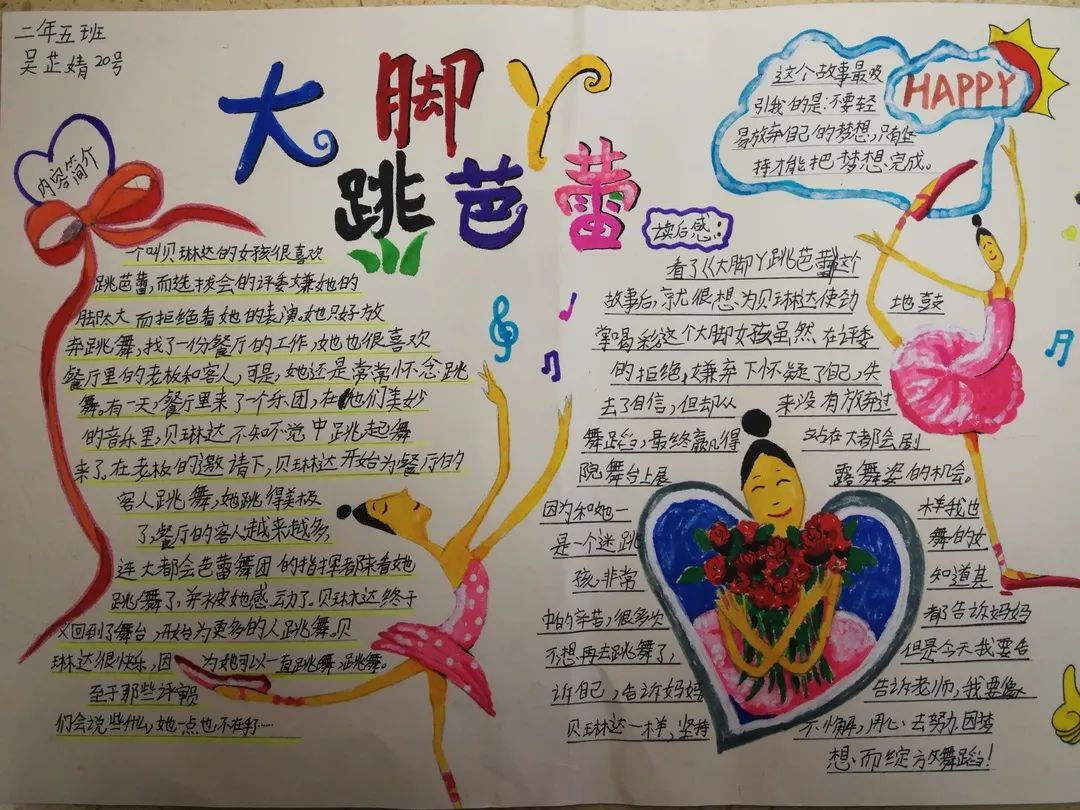 二年五班
吴芷婧20号
大脚丫
跳芭蕾
内容简介
一个叫贝琳达的女孩很喜欢
跳芭蕾,而选拔会的评委嫌她的
脚太大而拒绝看她的表演,她只好放
弃跳舞,找了一份餐厅的工作,她也很喜欢
餐厅里的老板和客人,可是,她还是常常怀念跳
舞。有一天,餐厅里来了一个乐团,在他们美妙
的音乐里,贝琳达不知不觉中跳起舞
来了。在老板的邀请下,贝琳达开始为餐厅的
客人跳舞,她跳得美极
了,餐厅的客人越来越多,
连大都会芭蕾舞团的指挥都来看她
跳舞了,并被她感动了。贝琳达终于
又回到了舞台,开始为更多的人跳舞。贝
琳达很快乐,因为她可以一直跳舞、跳舞。
至于那些评
们会说些什么,她一点也不在乎……
HAPPY
这个故事最吸
引我的是:不要轻
易放弃自己的梦想,只有坚
持才能把梦想完成。
读后感:
看了《大脚丫跳芭蕾》这个
故事后,就很想为贝琳达使劲地鼓
掌喝彩,这个大脚女孩虽然在评委
的拒绝,嫌弃下怀疑了自己,失
去了自信,但却从来没有放弃过
舞蹈,最终赢得站在大都会剧
院舞台上展露舞姿的机会。
因为和她一样我也
是一个迷跳舞的女
孩,非常知道其
中的辛苦,很多次都告诉妈妈
不想再去跳舞了,但是今天我要告
诉自己,告诉妈妈告诉老师,我要像
贝琳达一样,坚持不懈,用心去努力,因梦
想、而绽放舞蹈!